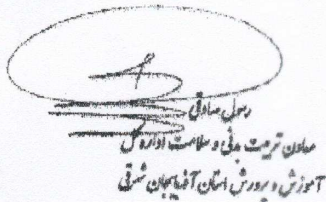 رسول صادقی
معاون تربیت بدنی و سلامت اداره کل
آموزش و پرورش استان آذربایجان شرقی